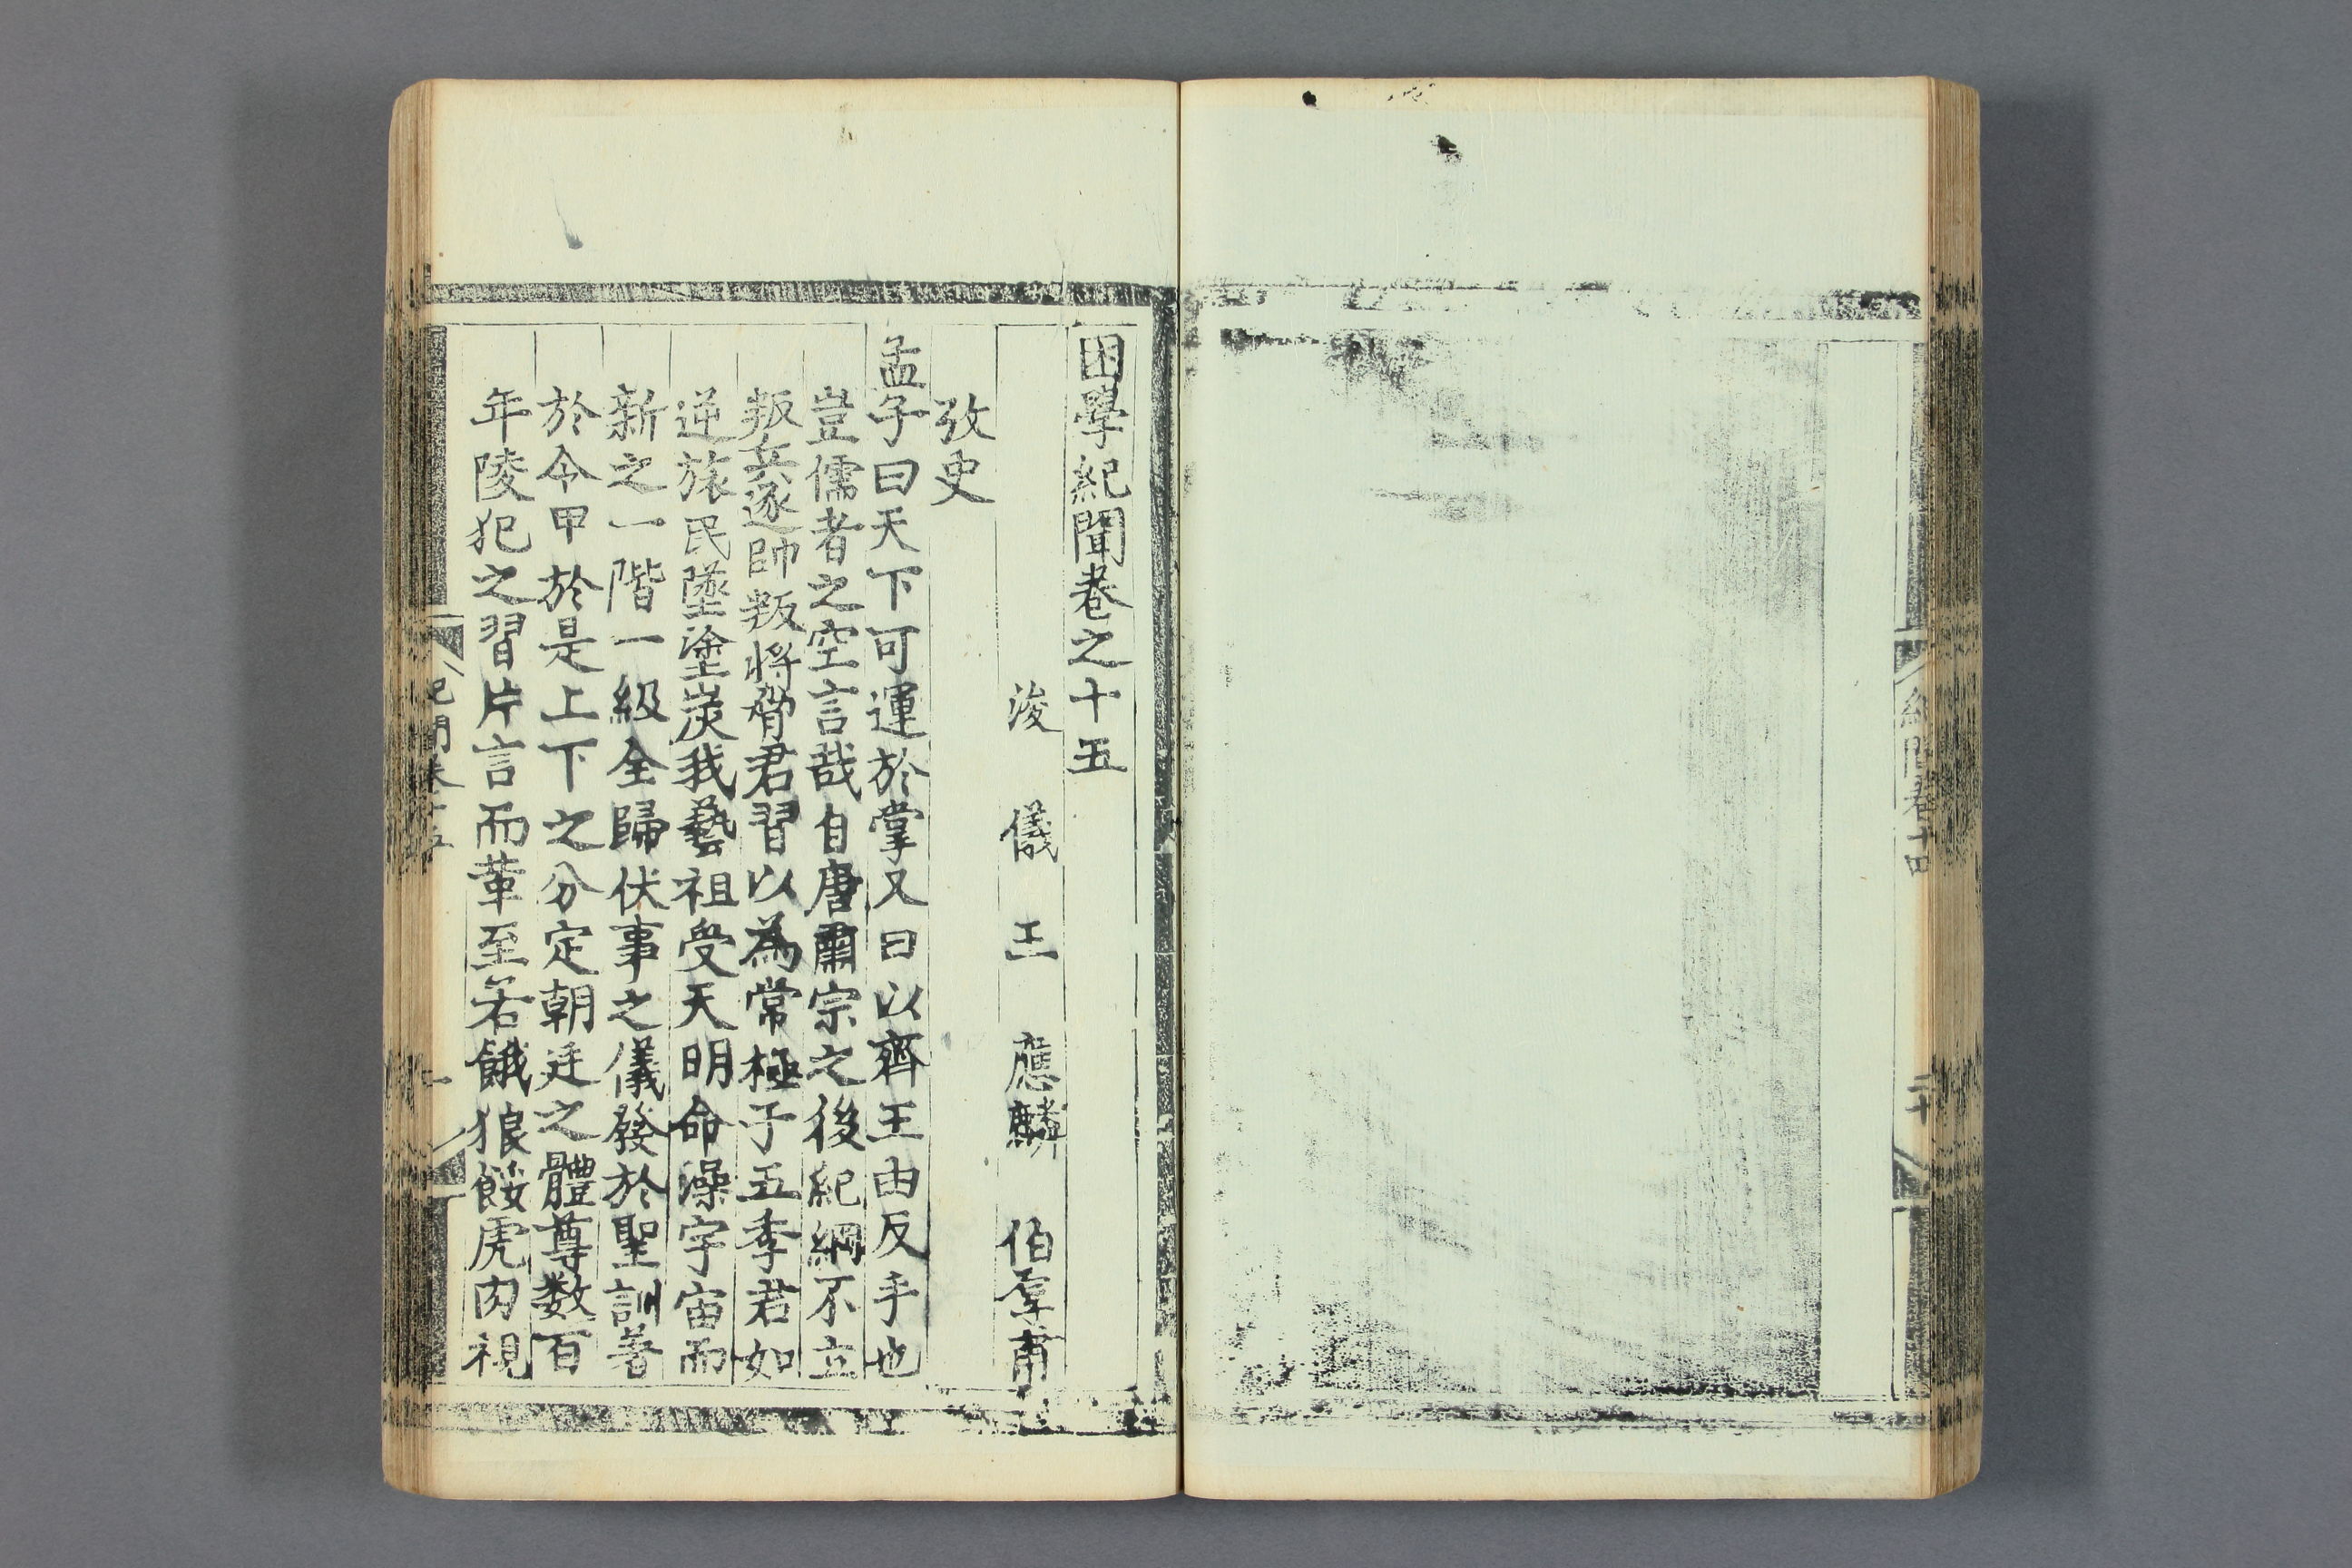 紀聞卷十四
二十
困學紀聞卷之十五
浚儀王應麟伯厚甫
攷史
孟子曰天下可運於掌又曰以齊王由反手也
豈儒者之空言哉自唐肅宗之後紀綱不立
叛兵逐帥叛將脅君習以為常極于五季君如
逆旅民墜塗炭我藝祖受天明命澡宇宙而
新之一階一級全歸伏事之儀發於聖訓著
於令甲於是上下之分定朝廷之體尊数百
年陵犯之習片言而革至若餓狼餒虎肉視
紀聞卷十五
一